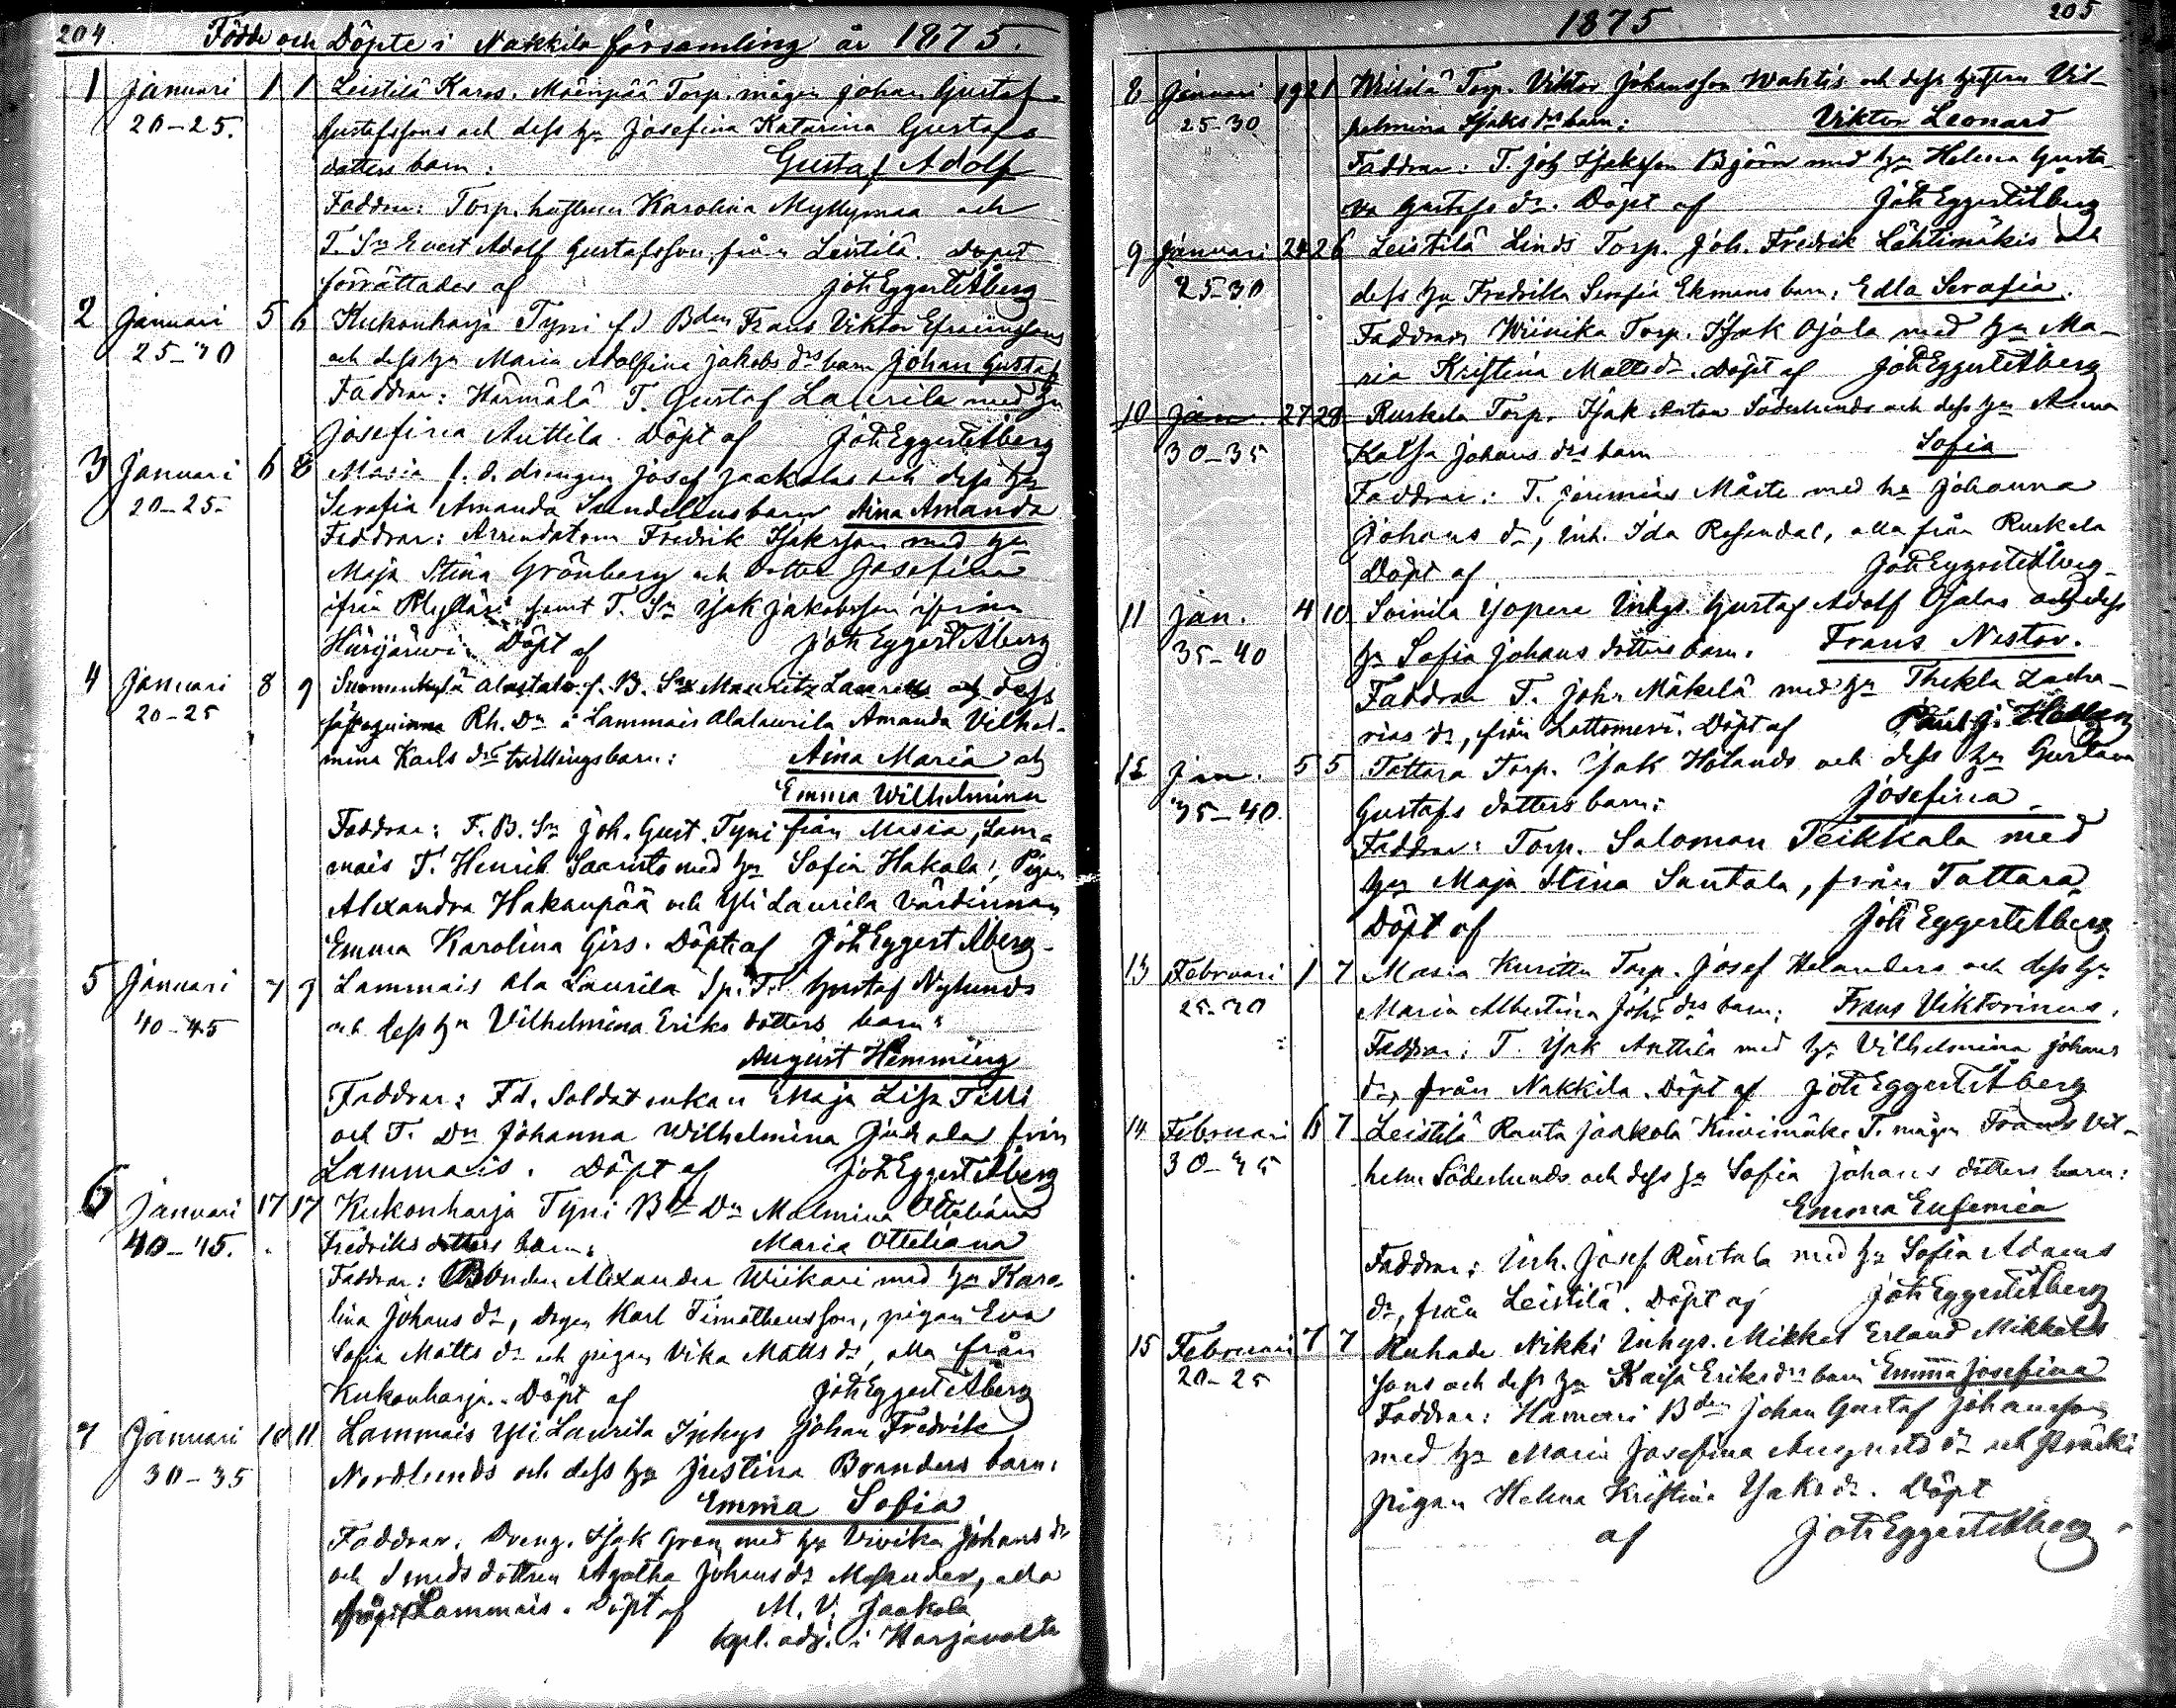 204 Födde och Döpte i Nakkila församling år 1875.
1 Januari 1 1 Leistilä Karos. Mäenpää Torp. mågen Johan Gustaf
20-25. Gustafssons och dess hu Josefina Katarina Gustafs
dotters barn: Gustaf Adolf
Faddrar: Torp. hustrun Karolina Myllymaa och
T. Sn Evert Adolf Gustafsson från Leistilä. Dopet
förrättades af Joh Eggert Åberg
2 Januari 5 6 Kukonharja Tyni f.d Bden Frans Viktor Efraimssons
25-30 och dess hu Maria Adolfina Jakobs drs barn Johan Gustaf
Faddrar: Härmälä T. Gustaf Laurila med hu
Josefina Anttila. Döpt af Joh Eggert Åberg
3 Januari 6 8 Masia f. d. drengen Josef Jaakolas och dess hu
20-25- Serafia Amanda Sundelius barn Aina Amanda
Faddrar: Arrendatorn Fredrik Isaksson med hu
Maja Stina Grönberg och dotter Josefina
ifrån samt T. Sn Isak Jakobsson ifrån
Döpt af Joh Eggert Åberg
4 Januari 8 9 Suomenkylä Alastalo f. B. Sns Mauritz och dess
20-25 Rh. Dn å Lammais Alalaurila Amanda Vilhel-
mina Karls drs tvillingsbarn: Aina Maria och
Emma Wilhelmina
Faddrar: F. B. Sn Joh. Gust. Tyni från Masia, Lam-
mais T. Henrik Saaristo med hu Sofia Hakala, Pigan
Alexandra Hakanpää och Yli Laurila Värdinnan
Emma Karolina Girs. Döpt af Joh Eggert Åberg-
5 Januari 7 9 Lammais Ala Laurila Sp. T. Gustaf Nylunds
40-45 och dess hu Vilhelmina Eriks dotters barn:
August Hemming
Faddrar: Fd. Soldat enkan Maja Lisa Talli
och T. Dn Johanna Wilhelmina från
Lammais. Döpt af Joh Eggert Åberg
6 Januari 17 17 Kukonharja Tyni Bd Dn Malmina Ottiliana
40-45. Fredriks dotters barn: Maria Otteliana
Faddrar: Bonden Alexander Wiikari med hu Karo-
lina Johans dr, drgen Karl Timotheusson, pigan Eva
Sofia Matts dr och pigan Vika Matts dr, alla från
Kukonharja. Döpt af Joh Eggert Åberg
7 Januari 10 11 Lammais Yli Laurila Inhys Johan Fredrik
30-35 Nordlunds och dess hu Justina Branders barn:
Emma Sofia
Faddrar: Dreng. Isak Gran med hu Vivika Johans dr
och Smeds dottren Agatha Johans dr, alla
Lammais. Döpt af M. V. Jaakola
kpl. adj. i Harjavalta
1875 205
8 Januari 19 21 Wiililä Torp. Viktor Johansson Wahtis och dess hustru Vil-
25-30 helmina Isaks drs barn: Viktor Leonard
Faddrar: T. Joh Isaksson Björn med hu Helena Gusta-
va Gustafs dr. Döpt af Joh Eggert Åberg
9 Januari 24 26 Leistilä Linds Torp. Joh. Fredrik Lähtimäkis och
25-30 dess hu Fredrika Serafia Ekmans barn: Edla Serafia.
Faddrar Wiinika Torp. Isak Ojala med hu Ma-
ria Kristina Matts dr. Döpt af Joh Eggert Åberg
10 Jan 27 28 Ruskela Torp. Isak Anton Söderlunds och dess hu Anna
30-35 Kaisa Johans drs barn Sofia
Faddrar: T. Jeremias Mårte med hu Johanna
Johans dr, Inh. Ida Rosendal, alla från Ruskela
Döpt af Joh Eggert Åberg-
11 Jan. 4 10 Soinila Inhys. Gustaf Adolf Ojalas och dess
35-40 hu Sofia Johans dotters barn. Frans Nestor.
Faddrar T. Joh. Mäkelä med hu Thekla Zacha-
rias dr, från Lattomeri. Döpt af Paul J. Hellén
12 Jan. 5 5 Tattara Torp. Isak Hölands och dess hu Gustava
35-40. Gustafs dotters barn: Josefina
Faddrar: Torp. Saloman Teikkala med
hu Maja Stina Santala, från Tattara
Döpt af Joh Eggert Åberg
13 Februari 1 7 Masia Kuritta Torp. Josef Helanders och dess hu
25-30 Maria Albertina Joh. drs barn: Frans Viktorinus.
Faddrar: T. Isak Anttila med hu Vilhelmina Johans
dr, från Nakkila. Döpt af Joh Eggert Åberg
14 Februari 6 7 Leistilä Ranta Jaakola Kivimäki T. mågen Frans Vil-
30-35 helm Söderlunds och dess hu Sofia Johans dotters barn:
Emma Eufemia
Faddrar: Inh. Josef med hu Sofia Adams
dr, från Leistilä. Döpt af Joh Eggert Åberg
15 Februari 7 7 Ruhade Nikki Inhys. Mikkel Erland Mikkels
20-25 sons och dess hu Kaisa Eriks drs barn Emma Josefina
Faddrar: Hameri Bden Johan Gustaf Johansson
med hu Maria Josefina Augusts dr och
pigan Helena Kristina Isaks dr. Döpt
af Joh Eggert Åberg